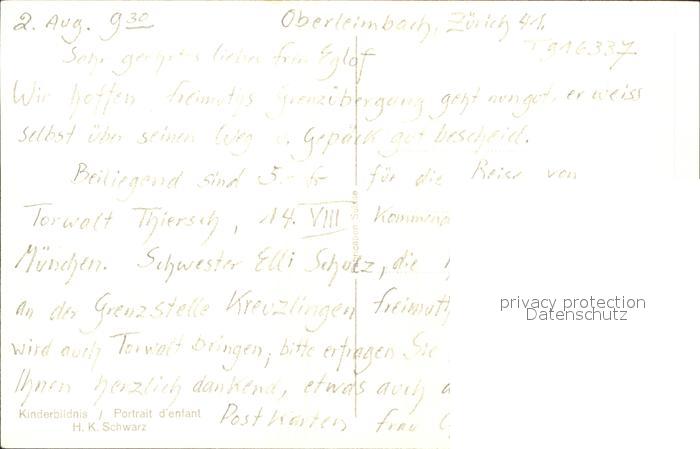 2. Aug. 9 30 Oberleimbach, Zürich 41.
T 916337
Sehr geehrtes liebes Frau Eglof
Wir hoffen freimuths Grenzübergang geht nun gut, er weiss
selbst über seinen Weg u. Gepäck gut bescheid.
Beiliegend sind 5.- fr für die Reise von
Torwalt Thiersch, 14. VIII Kommend
München. Schwester Elli Scholz, die
an der Grenzstelle Kreuzlingen freimuth
wird auch Torwalt bringen; bitte erfragen Sie
Ihnen herzlich dankend, etwas auch
Postkarten frau
Kinderbildnis / Portrait d'enfant
H. K. Schwarz
privacy protection
Datenschutz